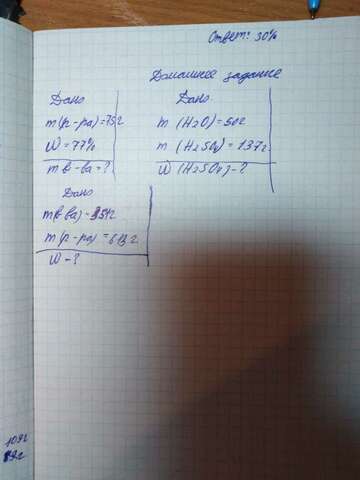 Ответ: 30%
Домашнее задание
Дано
m(р-ра)=75г
W=77%
m в-ва=?
Дано
m (H2O)=50г
m (H2SO4)=137г
W (H2SO4)-?
Дано
m(р-ра)=613г
W-?
109г